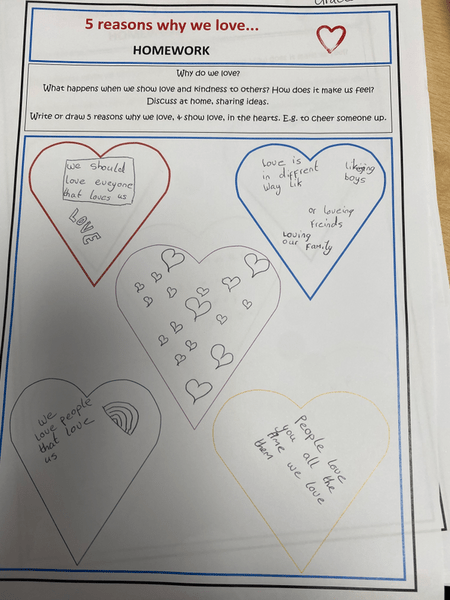 5 reasons why we love...
HOMEWORK
Why do we love?
What happens when we show love and kindness to others? How does it make us feel?
Discuss at home, sharing ideas.
Write or draw 5 reasons why we love, & show love, in the hearts. E.g. to cheer someone up.
we should
love eveyone
that loves us
LOVE
love is
in diffrent
way lik
boys
or loveing
freinds
Loving
our family
we
love people
that love
us
People love
you all the
time we love
them